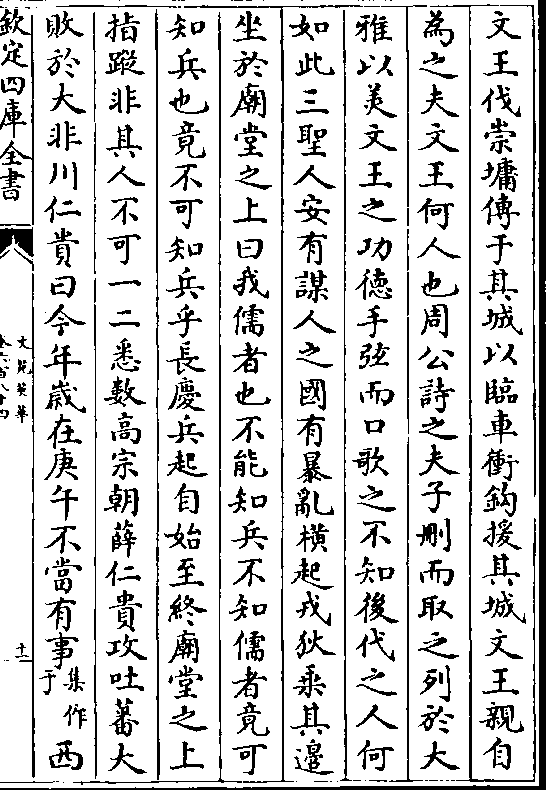 文王伐崇墉傅于其城以臨車衝鈎援其城文王親自
為之夫文王何人也周公詩之夫子刪而取之列於大
雅以美文王之功德手弦而口歌之不知後代之人何
如此三聖人安有謀人之國有暴亂橫起戎狄乗其邉
坐於廟堂之上曰我儒者也不能知兵不知儒者竟可
知兵也竟不可知兵乎長慶兵起自始至終廟堂之上
指蹤非其人不可一二悉數高宗朝薛仁貴攻吐蕃大
敗於大非川仁貴曰今年歲在庚午不當有事集作于西
欽定四庫全書
文苑英華
卷六百八十四
十一